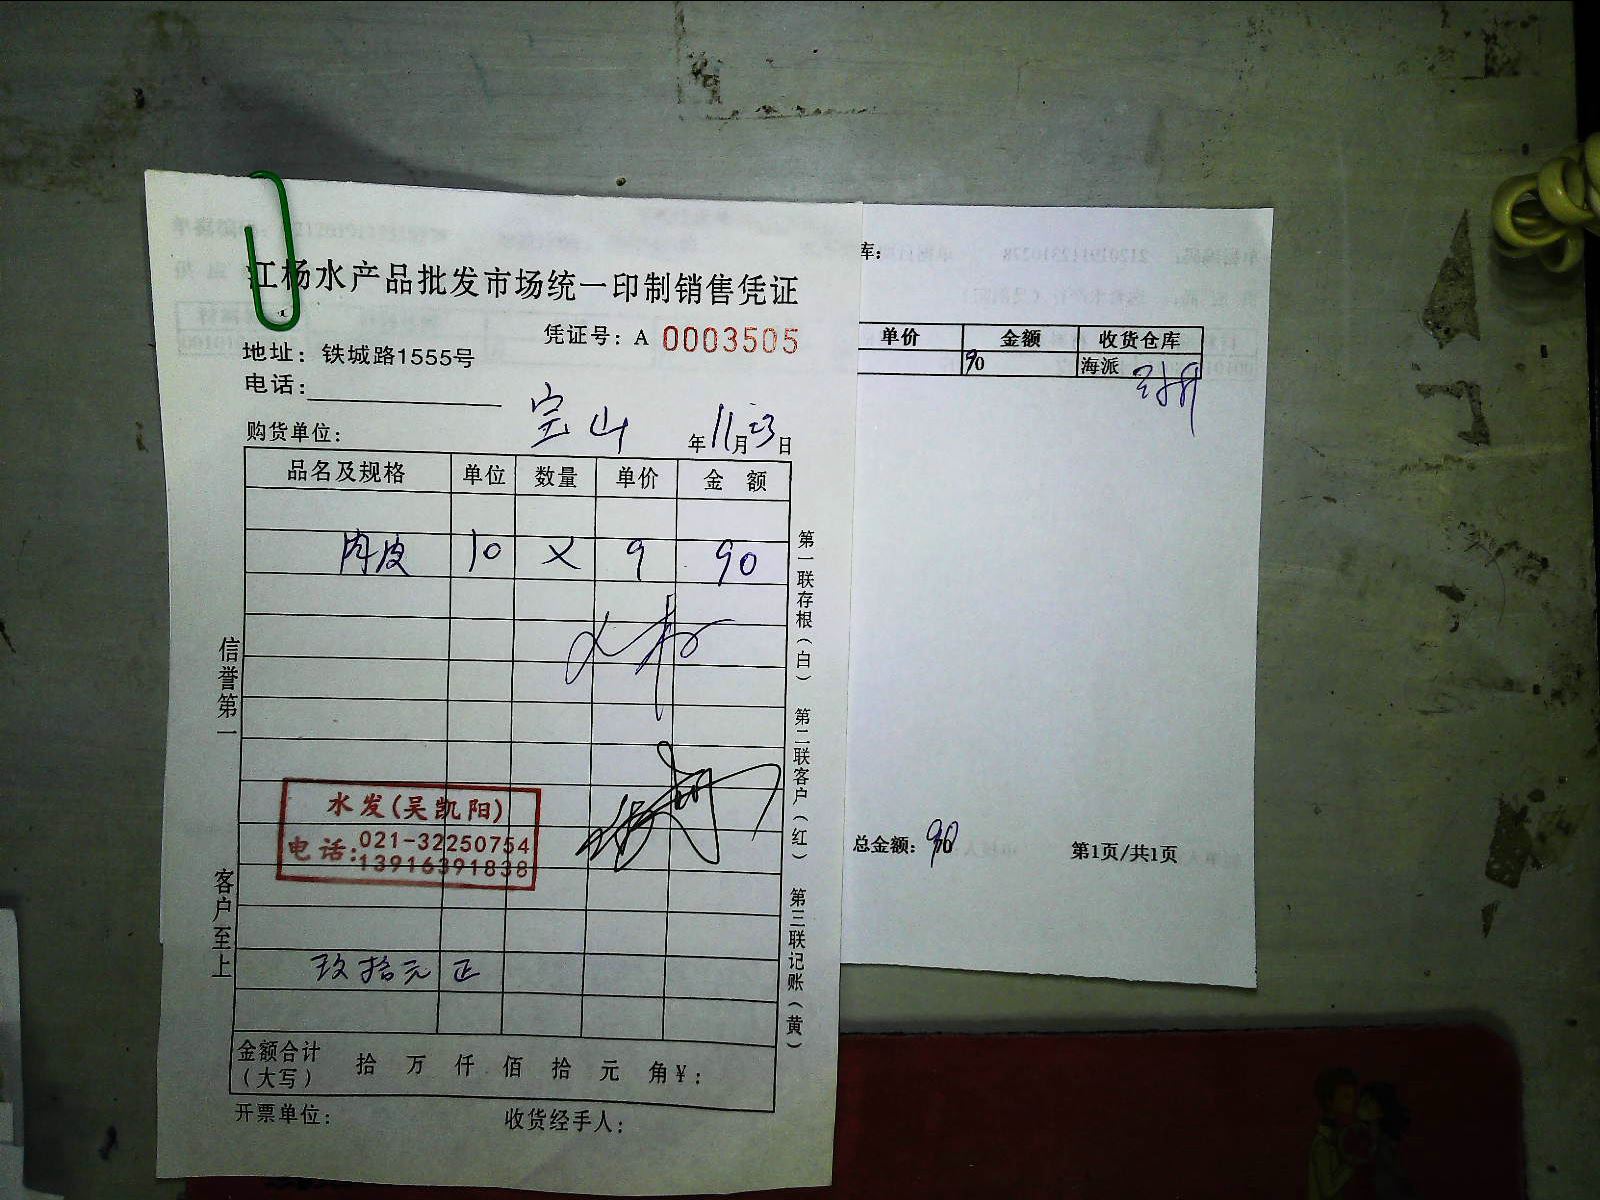 江杨水产品批发市场统一印制销售凭证
凭证号：A 0003505
地址：铁城路1555号
电话：
购货单位： 宝山 年11月23日
品名及规格 单位 数量 单价 金 额
肉皮 10 × 9 90
水发(吴凯阳)
电话：021-32250754
13916391838
玖拾元正
金额合计（大写） 拾 万 仟 佰 拾 元 角￥：
开票单位： 收货经手人：
信誉第一
客户至上
第一联存根（白） 第二联客户（红） 第三联记账（黄）
库：
单价 金额 收货仓库
90 海派
总金额：90 第1页/共1页